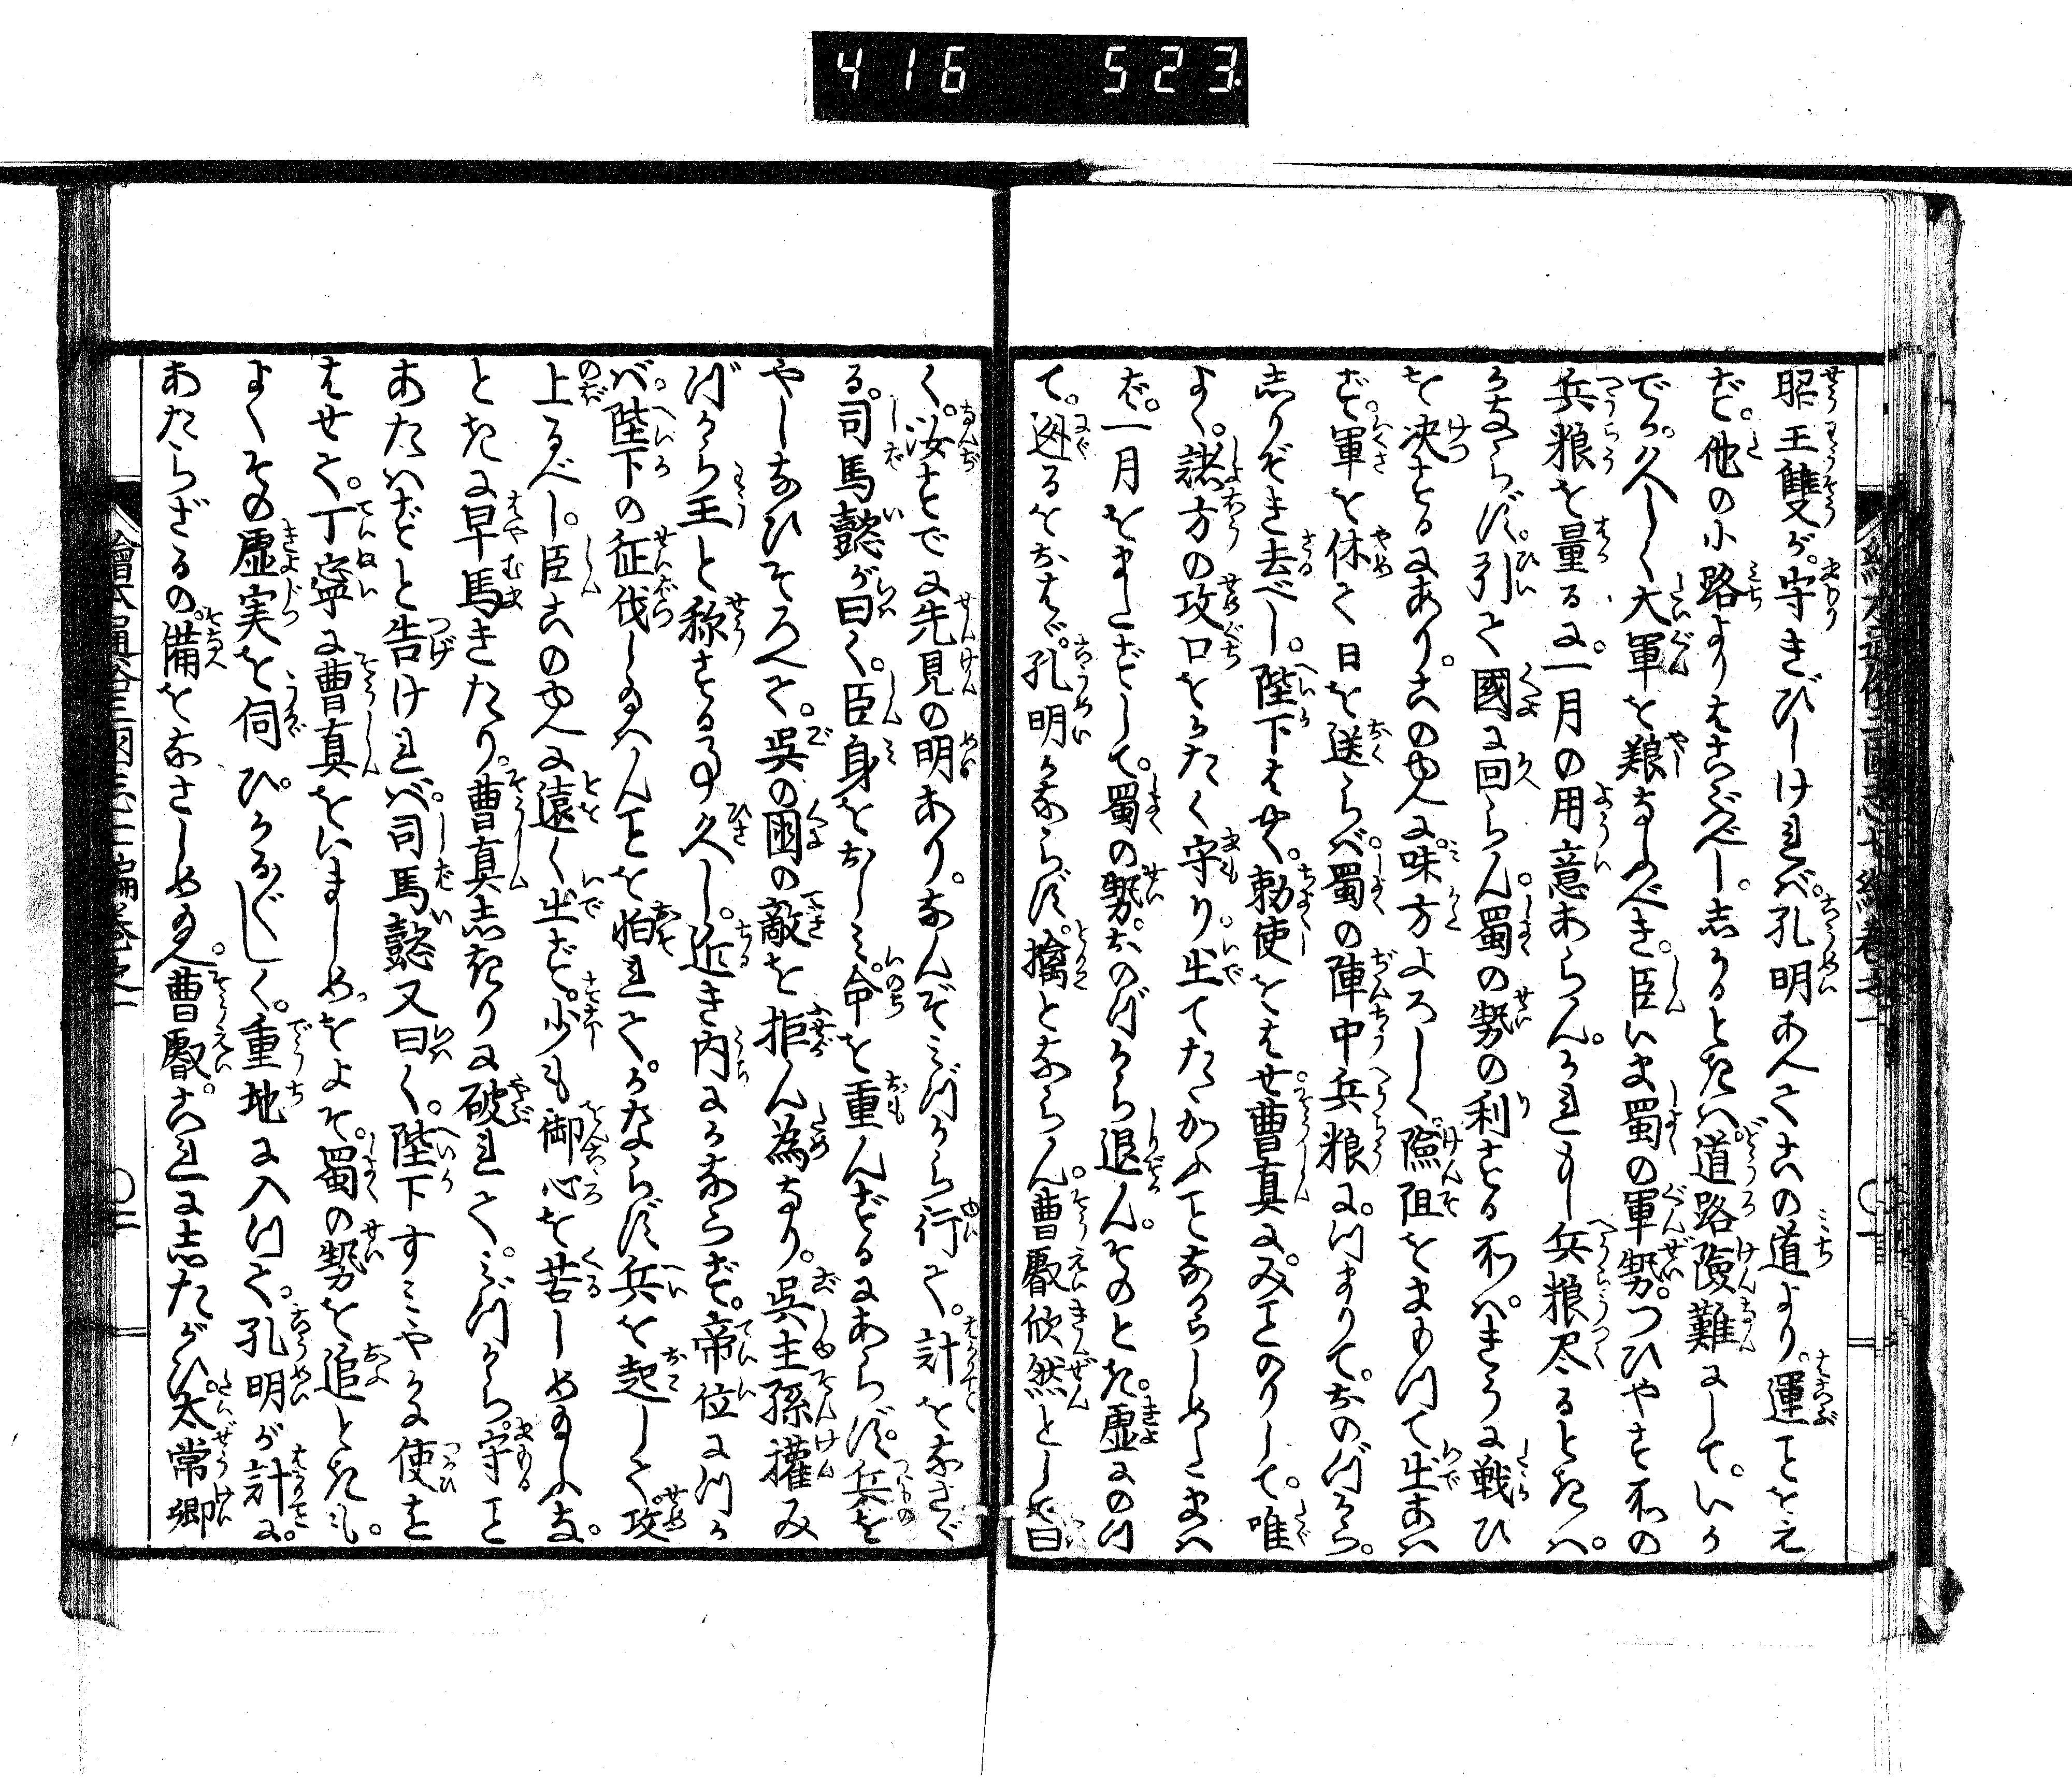 416 523
昭王雙が守きびしければ。孔明あへてこの道より。運ことをえ
ず。他の小路よりはこぶべし。しかるときは。道路険難にして。いか
でか。久しく大軍を粮なふべき。臣いま蜀の軍勢。つひやす所の
兵粮を量るに。一月の用意あらん。かれもし兵粮尽るときは。
かならず。引て國に回らん。蜀の勢の利とする所は。きうに戦ひ
を决するにあり。このゆへに。味方よろしく。險阻をまもつて出あは
ず。軍を休て日を送らば。蜀の陣中兵粮に。つまりて。おのづから。
しりぞき去べし。陛下はやく。勅使をはせ。曹真に。みことのりして。唯
よく。諸方の攻口をかたく守り。出てたゝかふことなからしめたまへ
ば。一月をまたずして。蜀の勢。おのづから退ん。そのとき。虚にのつ
て。迯るをおはゞ。孔明かならず。擒とならん。曹叡欣然として曰
く。汝すでに先見の明あり。なんぞみづから行て。計をなさゞ
る。司馬懿が曰く。臣身をおしみ。命を重んずるにあらず。兵を
やしなひそろへて。呉の國の敵を拒ん為なり。呉主孫權み
づから王と称する事久し。近き内にかならず。帝位につか
ば。陛下の征伐し給はんことを怕れて。かならず兵を起して。攻
上るべし。臣このゆへに遠く出ず。少も御心を苦しめ給ふな。
ときに早馬きたり。曹真しきりに破れて。みづから。守こと
あたはずと告ければ。司馬懿又曰く。陛下すみやかに使を
はせて。丁寧に曹真をいましめ。およそ。蜀の勢を追ときも。
よくその虚実を伺ひ。かるがしく。重地に入つて。孔明が計に。
あたらざるの。備をなさしめ給へ。曹叡。これにしたがひ。太常卿